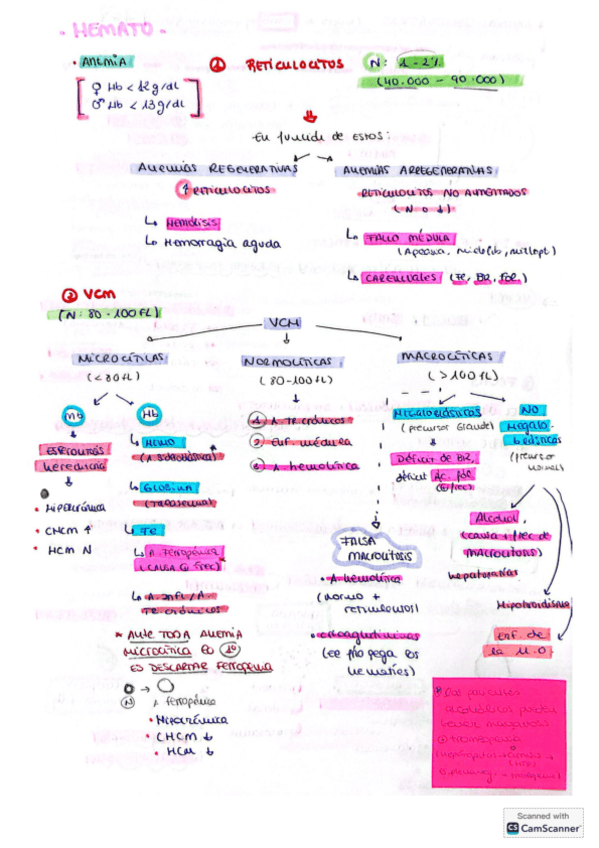 · HEMATO ·
· ANEMIA
♀ Hb < 12 g/dl
♂ Hb < 13 g/dl
① RETICULOCITOS
N: 1 - 2%
(40.000 - 90.000)
En función de estos:
ANEMIAS REGENERATIVAS
↑ RETICULOCITOS
↳ HEMÓLISIS
↳ Hemorragia aguda
ANEMIAS ARREGENERATIVAS
RETICULOCITOS NO AUMENTADOS
(N o ↓)
↳ FALLO MÉDULA
↳ CARENCIALES (FE, B12, FOL)
② VCM
(N: 80 - 100 FL)
VCM
MICROCÍTICAS
(< 80 fl)
Mb
ESFEROCITOSIS
hereditaria
• Hipercrómica
• CHCM ↑
• HCM N
Hb
↳ HEMO
(A. sideroblástica)
↳ Globina
(Talasemia)
↳ FE
↳ A. Ferropénica
(CAUSA + FREC)
↳ A. Infl / A.
TR. crónicos
* ANTE TODA ANEMIA
MICROCÍTICA lo 1º
ES DESCARTAR FERROPENIA
N
A. ferropénica
• Hipocrómica
• CHCM ↓
• HCM ↓
NORMOCÍTICAS
(80 - 100 fl)
1. A. TR. crónicos
2. Enf. médula
3. A. hemolítica
MACROCÍTICAS
(> 100 fl)
Megaloblásticas
(precursor Grande)
Déficit de B12
déficit Ác. fol
(+ frec)
NO
Megalo-
blásticas
(precursor
normal)
Alcohol
(causa + frec de
MACROCITOSIS)
hepatopatías
Hipotiroidismo
Enf. de
la M.O
FALSA
MACROCITOSIS
• A. hemolítica
(normo +
reticulocitos)
• crioaglutininas
(el frío pega los
hematíes)
* Los pacientes
alcohólicos pueden
tener
trombopenia
Scanned with
CS CamScanner